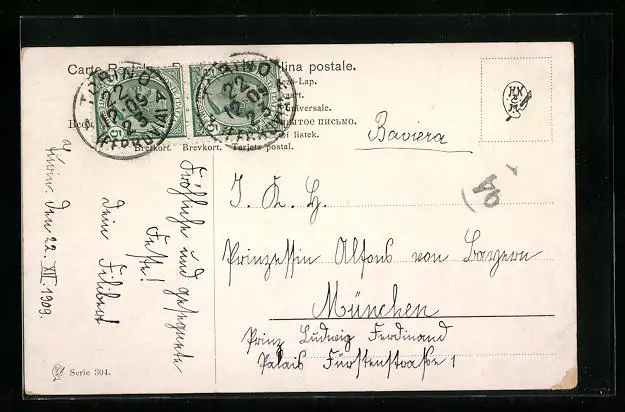 Carte
olina postale.
Lap.
kaart.
universale.
ытое письмо.
listek.
Brefkort. Brevkort. Tarjeta postal.
TORINO
22
12.09
23
FERROVIA
TORINO
22
12.09
23
FERROVIA
Baviera
9A
J. K. H.
Prinzessin Alfons von Bayern
München
Prinz Ludwig Ferdinand
Palais Fürstenstraße 1
Fröhliche und gesegnete
Feste!
Dein Filibert
Turin, den 22. XII. 1909.
Serie 304.